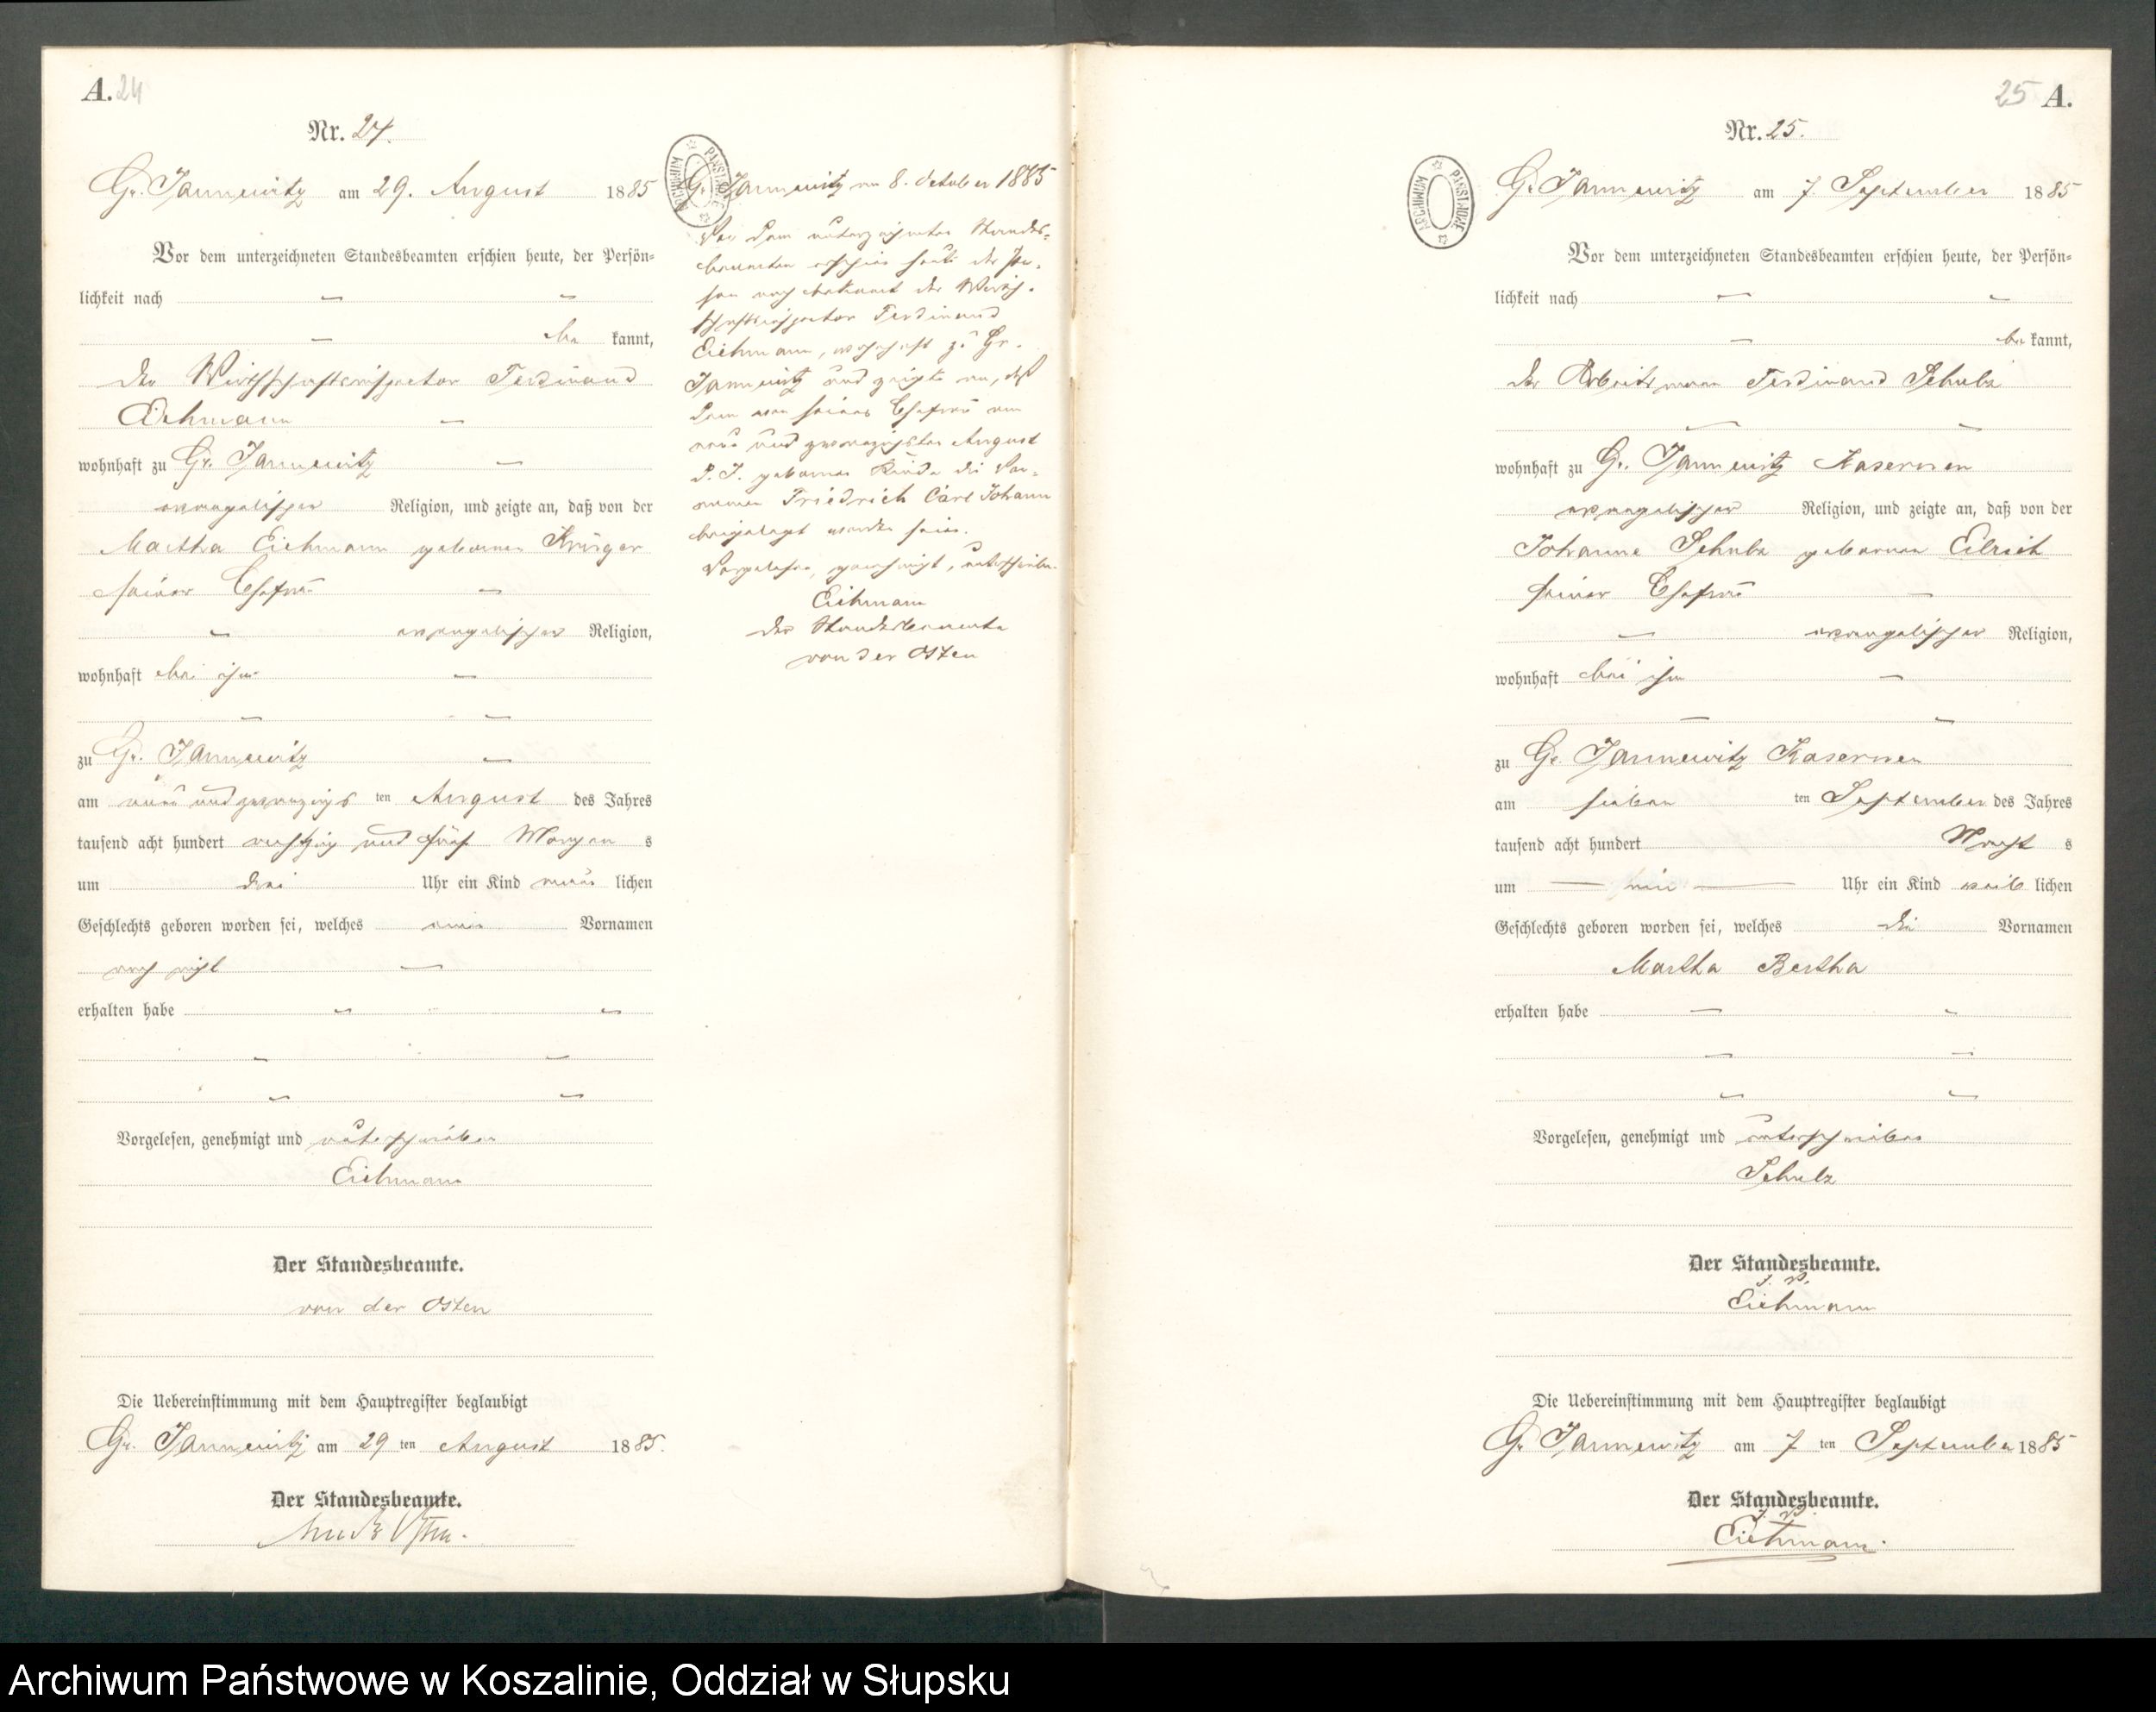 A. 24
Nr. 24.
Gr. Jannewitz am 29. August 1885
Vor dem unterzeichneten Standesbeamten erschien heute, der Persön=
lichkeit nach
be kannt,
der Wirthschaftsinspector Ferdinand
Eichmann
wohnhaft zu Gr. Jannewitz
evangelischer Religion, und zeigte an, daß von der
Martha Eichmann geborenen Krüger
seiner Ehefrau
evangelischer Religion,
wohnhaft bei ihm
zu Gr. Jannewitz
am neun und zwanzigs ten August des Jahres
tausend acht hundert achtzig und fünf Morgen s
um drei Uhr ein Kind männ lichen
Geschlechts geboren worden sei, welches einen Vornamen
noch nicht
erhalten habe
Vorgelesen, genehmigt und unterschrieben
Eichmann
Der Standesbeamte.
von der Osten
Die Uebereinstimmung mit dem Hauptregister beglaubigt
Gr. Jannewitz am 29 ten August 1885.
Der Standesbeamte.
von der Osten.
ARCHIWUM PAŃSTWOWE
Gr. Jannewitz am 8. October 1885
Vor dem unterzeichneten Standes=
beamten erschien heute der Per=
son nach bekannt der Wirth=
schaftsinspector Ferdinand
Eichmann, wohnhaft zu Gr.
Jannewitz und zeigte an, daß
dem von seiner Ehefrau am
neun und zwanzigsten August
d. J. geborenen Kinde die Vor=
namen Friedrich Carl Johann
beigelegt worden seien.
Vorgelesen, genehmigt, unterschrieben
Eichmann
Der Standesbeamte
von der Osten
25 A.
Nr. 25.
ARCHIWUM PAŃSTWOWE
Gr. Jannewitz am 7. September 1885
Vor dem unterzeichneten Standesbeamten erschien heute, der Persön=
lichkeit nach
be kannt,
der Arbeitsmann Ferdinand Schulz
wohnhaft zu Gr. Jannewitz Kasernen
evangelischer Religion, und zeigte an, daß von der
Johanne Schulz geborenen Eilrich
seiner Ehefrau
evangelischer Religion,
wohnhaft bei ihm
zu Gr. Jannewitz Kasernen
am sieben ten September des Jahres
tausend acht hundert Nacht s
um ein Uhr ein Kind weib lichen
Geschlechts geboren worden sei, welches die Vornamen
Martha Bertha
erhalten habe
Vorgelesen, genehmigt und unterschrieben
Schulz
Der Standesbeamte.
J. V.
Eichmann
Die Uebereinstimmung mit dem Hauptregister beglaubigt
Gr. Jannewitz am 7 ten September 1885
Der Standesbeamte.
J. V.
Eichmann.
Archiwum Państwowe w Koszalinie, Oddział w Słupsku